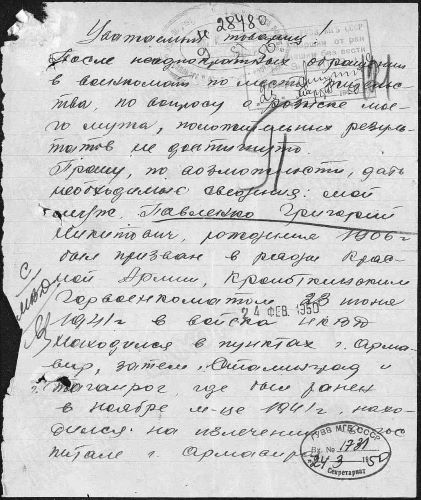 28480
Уважаемый товарищ!
После неоднократных обращений
в военкомат по месту
ства, по вопросу о розыске мое-
го мужа, положительных резуль-
татов не достигнуто.
Прошу, по возможности, дать
необходимые сведения: мой
муж, Павленко Григорий
Никитович, рождения 1906 г
был призван в ряды Крас-
ной Армии, Кропоткинским
Горвоенкоматом 23 июня
24 ФЕВ. 1950
1941 г в войска НКВД
Находился в пунктах г. Арма-
вир, затем Сталинград и
Таганрог, где был ранен
в ноябре м-це 1941 г, нахо-
дился на излечении гос
питале г. Армавира
ГУВВ МГБ СССР
Вх. № 1731
24 3 1950
Секретариат